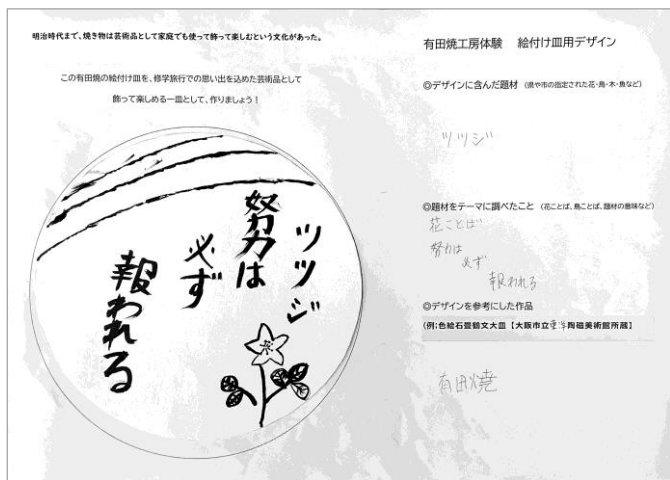 明治時代まで、焼き物は芸術品として家庭でも使って飾って楽しむという文化があった。
この有田焼の絵付け皿を、修学旅行での思い出を込めた芸術品として
飾って楽しめる一皿として、作りましょう!
ツツジ
努力は
必ず
報われる
有田焼工房体験 絵付け皿用デザイン
◎デザインに含んだ題材 (県や市の指定された花・鳥・木・魚など)
ツツジ
◎題材をテーマに調べたこと (花ことば、鳥ことば、題材の意味など)
花ことば
努力は
必ず
報われる
◎デザインを参考にした作品
(例:色絵石畳鶴文大皿【大阪市立東洋陶磁美術館所蔵】
有田焼